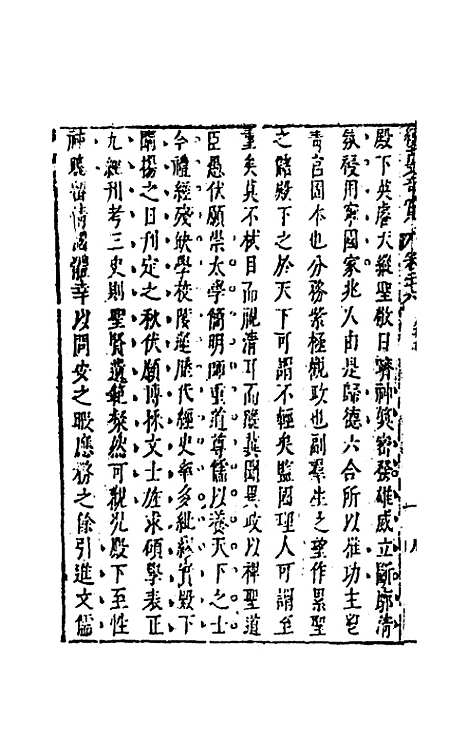 殿下英睿天縱聖敬日躋神筭密發雄威立斷廓清
氛祲用寧國家兆人由是歸德六合所以推功主鬯
青宮固本也分務紫極觀政也副羣生之望作累聖
之儲殿下之於天下可謂不輕矣監國理人可謂至
重矣莫不拭目而視清耳而聽冀聞異政以裨聖道
臣愚伏願崇太學簡明師重道尊儒以養天下之士
今禮經殘缺學校陵遲歷代經史率多紕繆實殿下
闡揚之日刊定之秋伏願博採文士旌求碩學表正
九經刊考三史則聖賢遺範粲然可觀況殿下至性
神聰留情國體幸以問安之暇應務之餘引進文儒